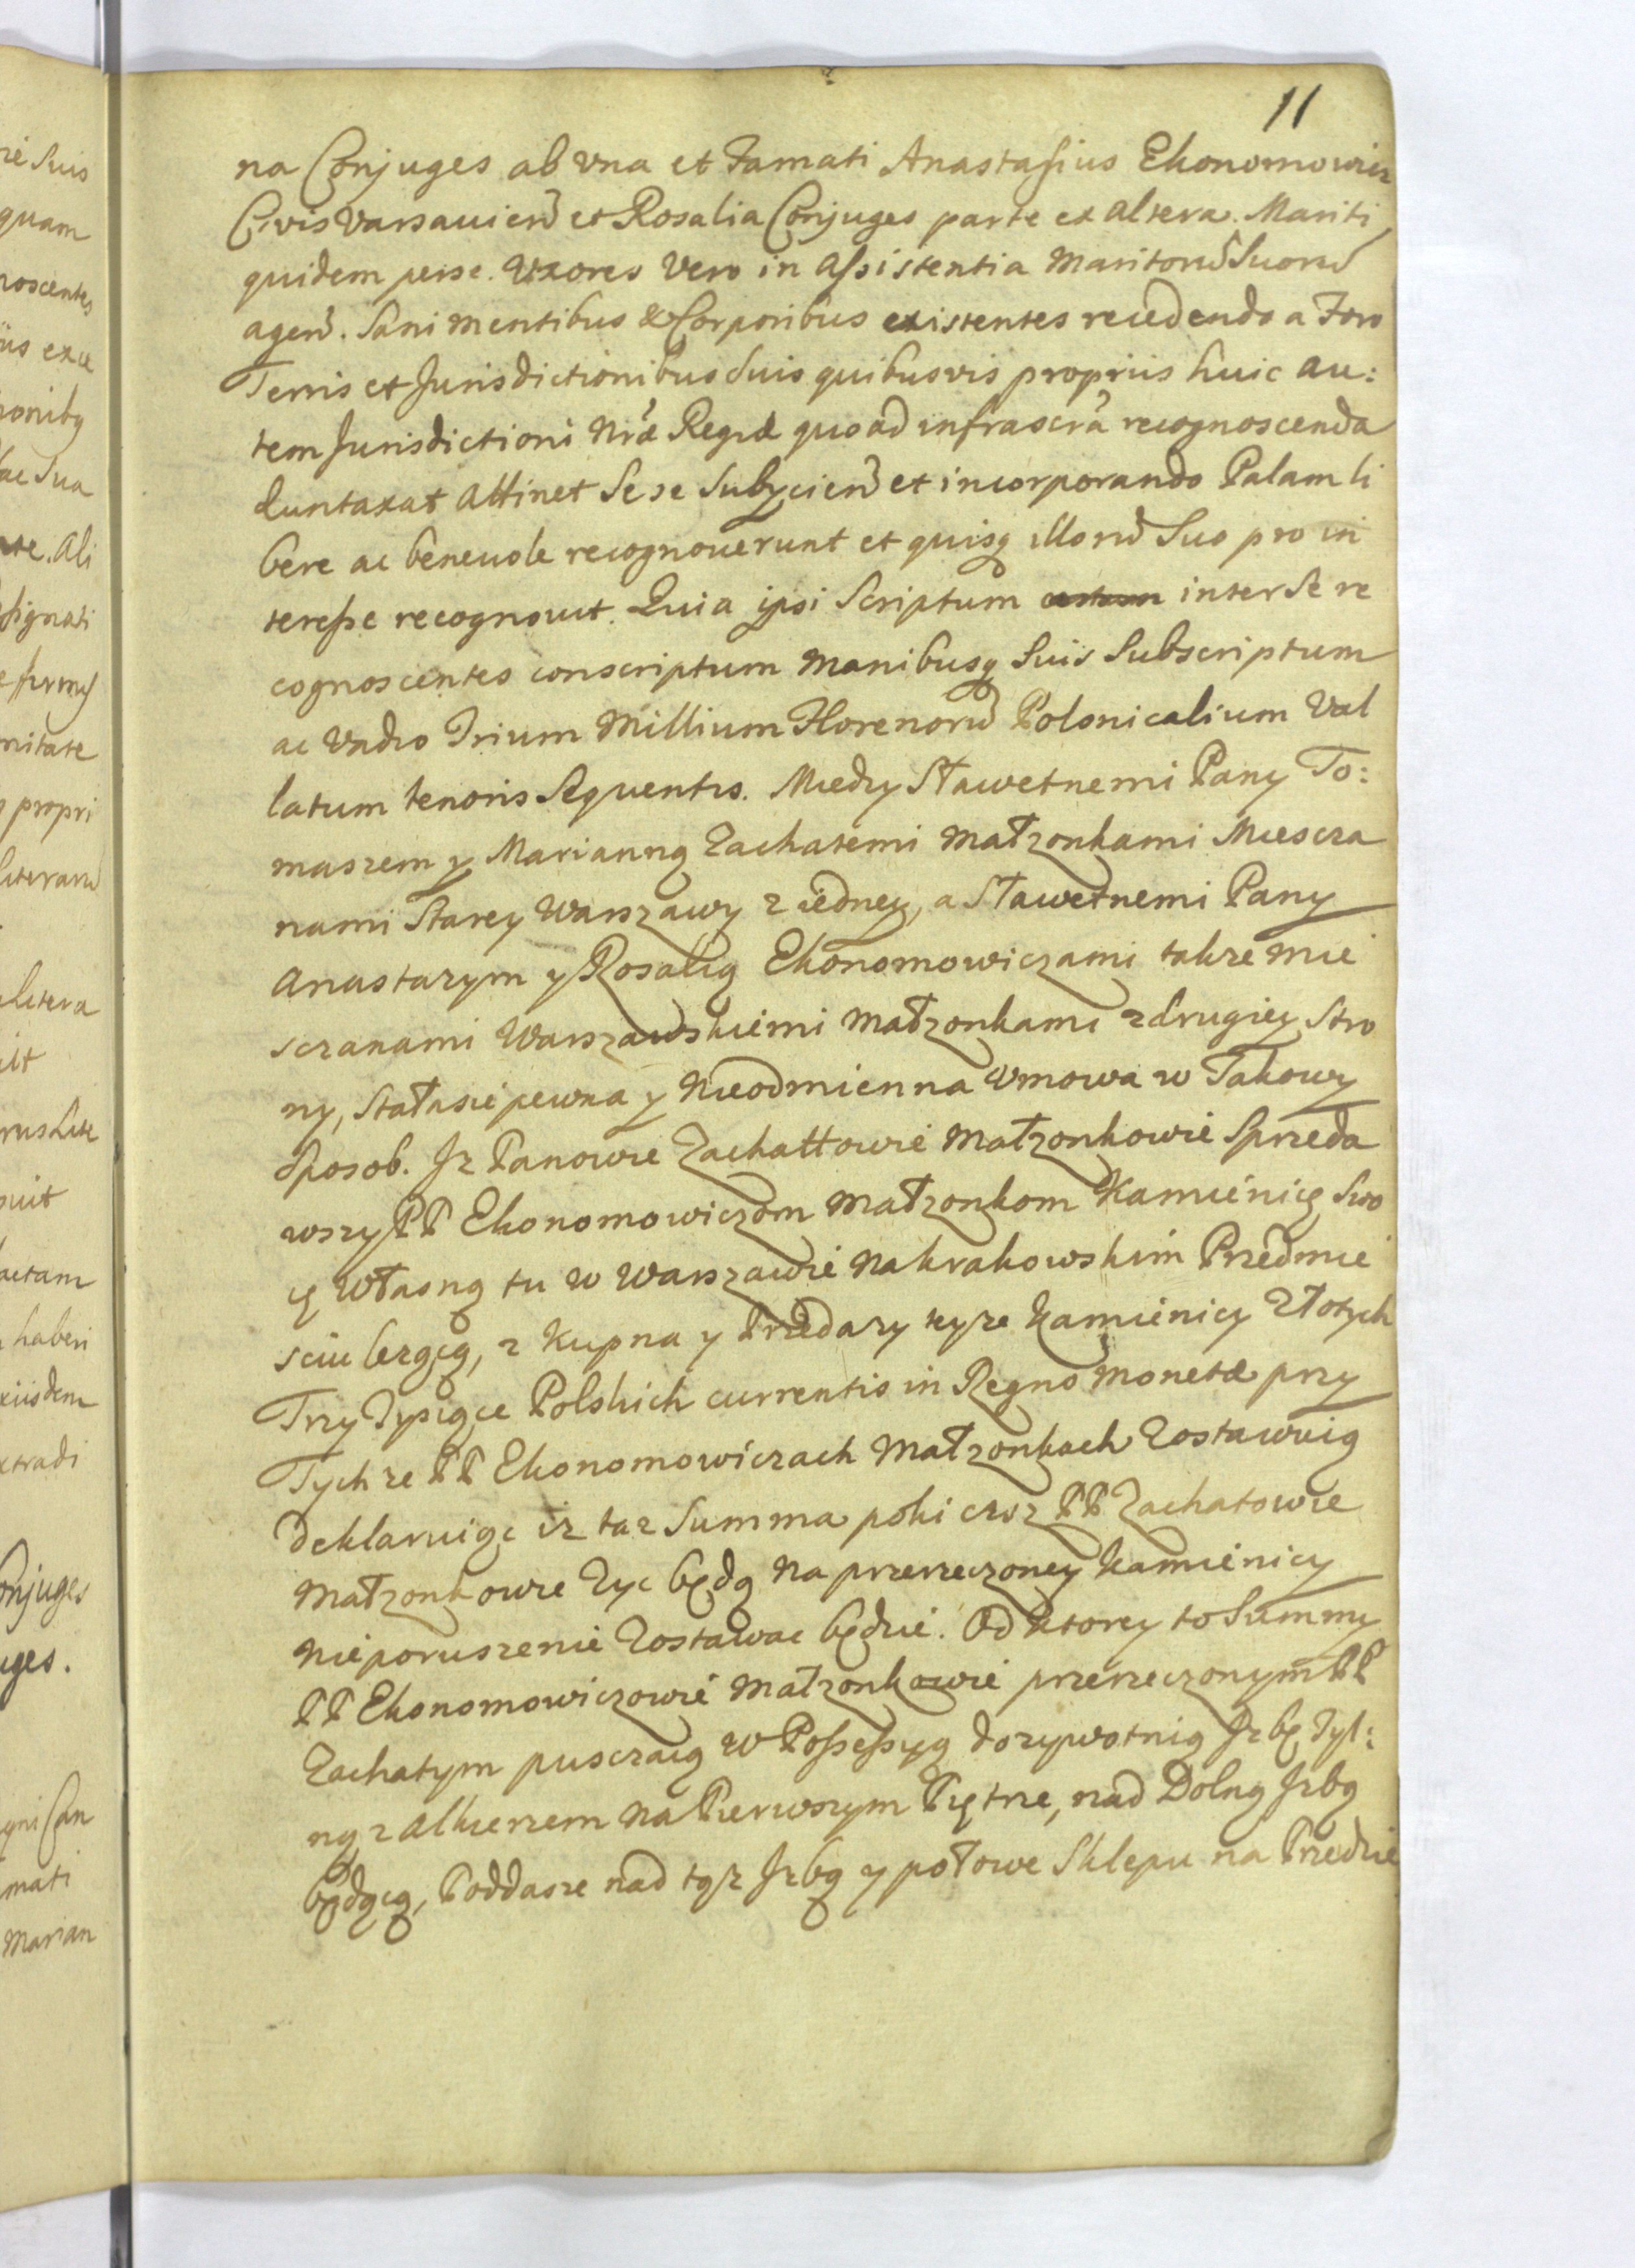 11
na Conjuges ab vna et Famati Anastasius Ekonomowicz
Civis Varsavien et Rosalia Conjuges parte ex altera. Mariti
quidem perse. Uxores Vero in Assistentia Maritorũ Suorũ
agen. Sani Mentibus & Corporibus existentes recedendo a Foro
Terris et Jurisdictionibus Suis quibusvis propriis huic au:
tem Jurisdictioni Nrã Regiæ quoad infrascrã recognoscenda
duntaxat Attinet Sese Subycien et incorporando Palam li
bere ac benevole recognoverunt et quisq illorũ Suo pro in
teresse recognovit. Quia ipsi Scriptum inter Se re
cognoscentes conscriptum Manibusq Suis Subscriptum
ac Vadio Trium Millium Florenorũ Polonicalium Val
latum tenoris Sequentis. Miedzy Sławetnemi Pany To:
maszem y Marianną Zachatemi Małzonkami Miescza
nami Starey Warszawy z iedney, a Sławetnemi Pany
Anastazym y Rosalią Ekonomowiczami takze Mie
sczanami Warszawskiemi Małzonkami z drugiey Stro
ny, Stała sie pewna y Nieodmienna Vmowa w Takowy
Sposob. Jz Panowie Zachattowie Małzonkowie Sprzeda
wszy PP Ekonomowiczom Małzonkom Kamienicę Swo
ię Własną tu w Warszawie Na krakowskim Przedmie
sciu lezącą, z Kupna y Przedazy teyze Kamienicy Złotych
Trzy Tysiące Polskich currentis in Regno Monetæ przy
Tychze PP Ekonomowiczach Małzonkach Zostawuią
Deklaruiąc iz taz Summa poki czsz PP Zachatowie
Małzonkowie Zyc będą Na przerzeczoney Kamienicy
Nieporuszenie Zostawac będzie. Od ktorey to Summy
PP Ekonomowiczowie Małzonkowie przerzeczonym PP
Zachatym pusczaią w Possessyą dozywotnią Jzbę Tyl:
ną z Alkierzem Na Pierwszym Piętrze, nad Dolną Jzbą
będącą, Poddasze nad tąz Jzbą y połowe Sklepu na Przedzie